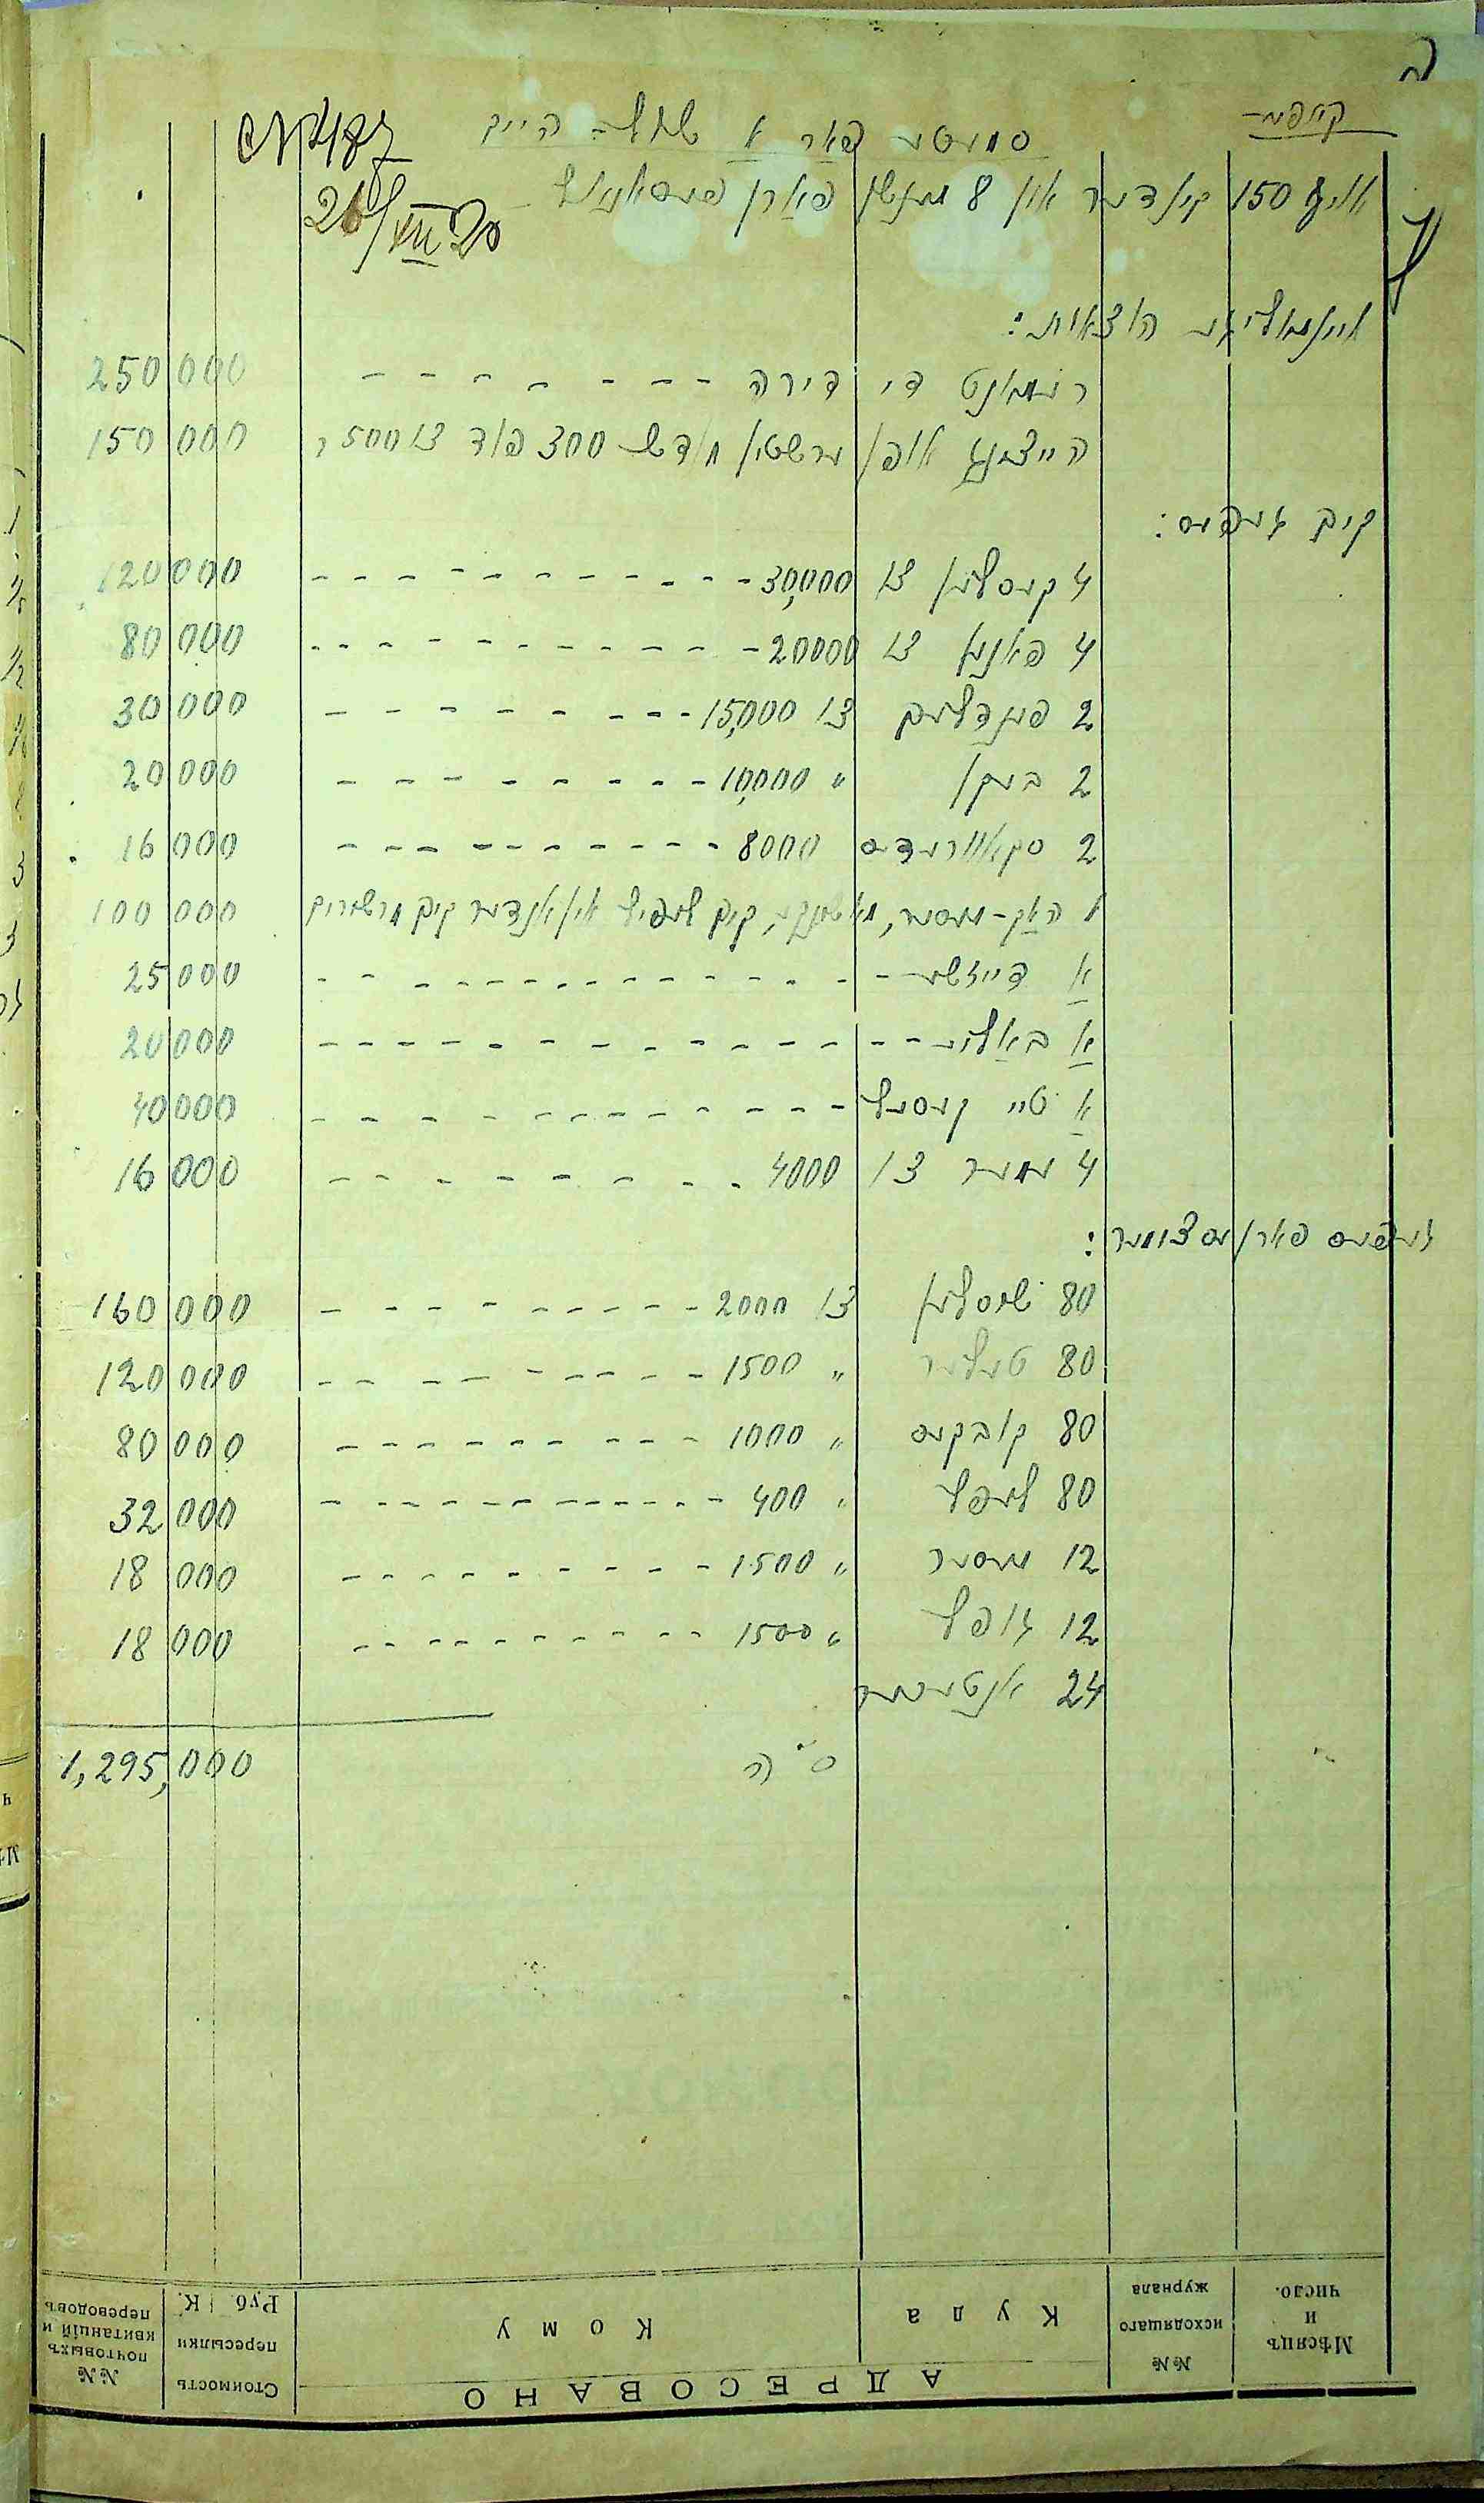 קאפיע
№ 487
סמעטע פאר א שול-היים
26/XII 20
אויף 150 קינדער און 8 מענטשן פארן פערסאנאל
איינמאליגע הוצאות:
רעמאנט די דירה - - - - - - - - 250 000
הייצונג אופן ערשטן חודש 300 פוד צו 500 ר 150 000
קיך געפעס:
4 קעסלען צו 30,000 - - - - - - - - - - - 120 000
4 פאנען צו 20000 - - - - - - - - - - 80 000
2 פענדלעך צו 15,000 - - - - - - - - - 30 000
2 בעקן " 10,000 - - - - - - - - - 20 000
2 סקאוורעדעס 8000 - - - - - - - - - - 16 000
1 האק-מעסער, קיך לעפיל אין אנדער קיך 100 000
א דייזשע - - - - - - - - - - - - 25 000
א באליע - - - - - - - - - - - - - 20 000
א טיי קעסעל - - - - - - - - - - - - 40 000
4 עמער צו 4000 - - - - - - - - - 16 000
געפעס פארן עסצימער:
80 שיסלען צו 2000 - - - - - - - - - - 160 000
80 טעלער " 1500 - - - - - - - - - 120 000
80 קובקעס " 1000 - - - - - - - - - 80 000
80 לעפל " 400 - - - - - - - - - - - 32 000
12 מעסער " 1500 - - - - - - - - - 18 000
12 גופל " 1500 - - - - - - - - - - 18 000
24
ס"ה 1,295,000
АДРЕСОВАНО
Мѣсяцъ и число.
№№ исходящаго журнала
Куда
Кому
Стоимость пересылки
Руб К.
№№ почтовыхъ квитанцій и переводовъ